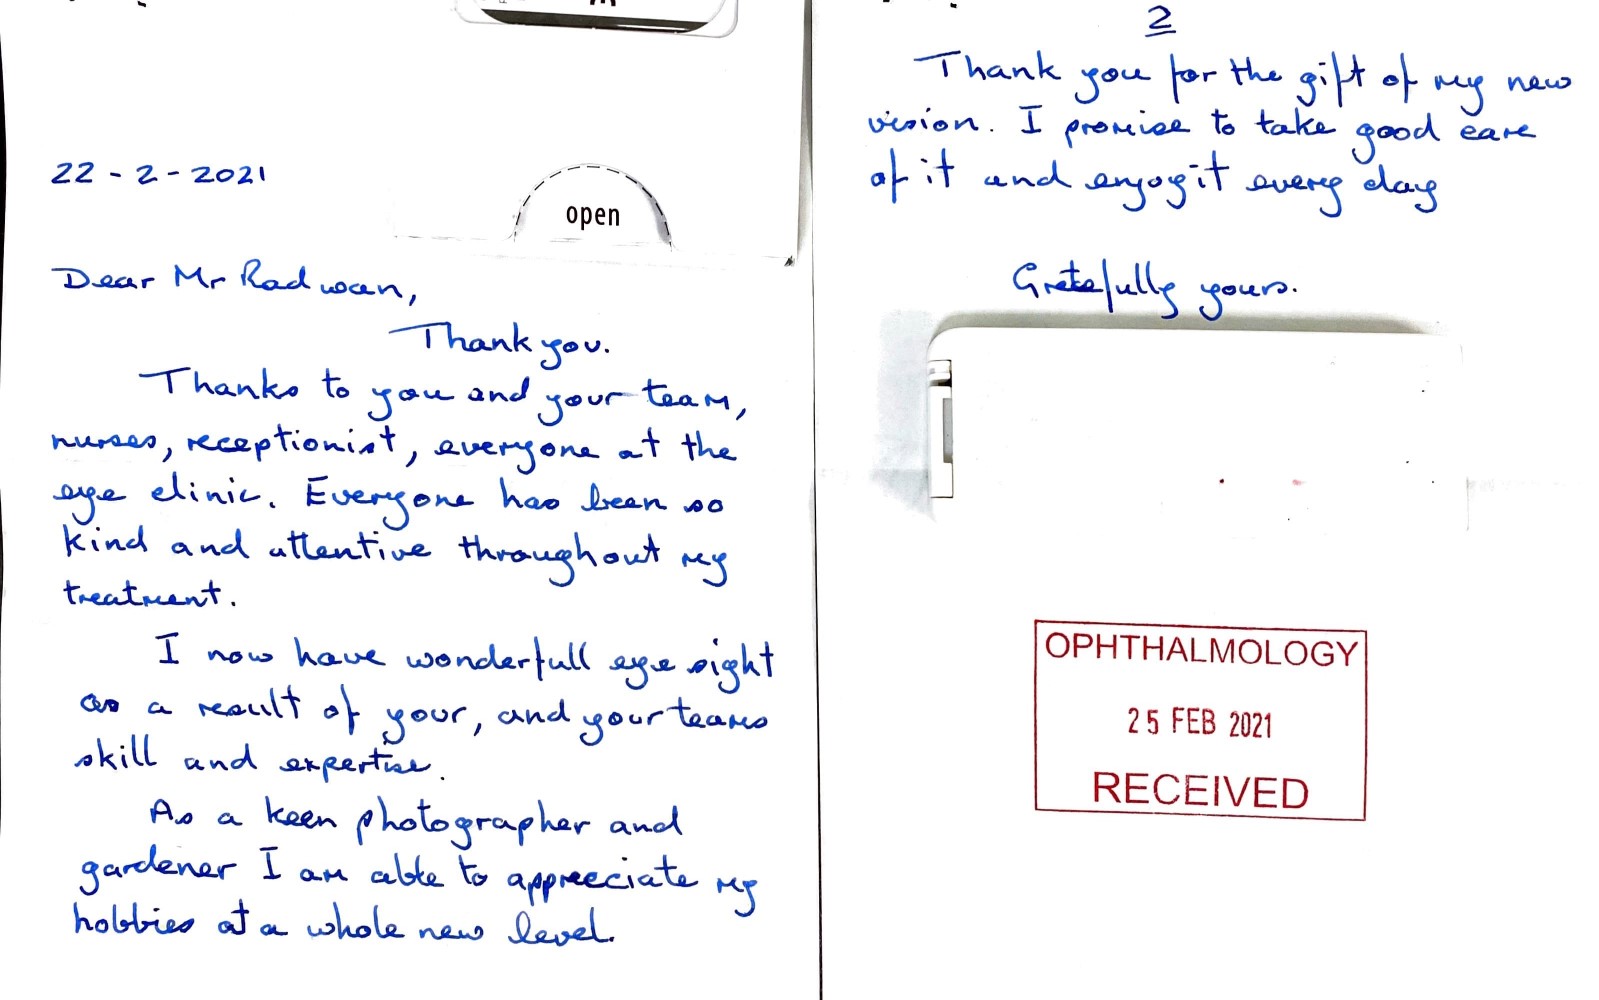 22 - 2 - 2021
open
Dear Mr Radwan,
Thank you.
Thanks to you and your team,
nurses, receptionist, everyone at the
eye clinic. Everyone has been so
kind and attentive throughout my
treatment.
I now have wonderfull eye sight
as a result of your, and your teams
skill and expertise.
As a keen photographer and
gardener I am able to appreciate my
hobbies at a whole new level.
2
Thank you for the gift of my new
vision. I promise to take good care
of it and enjoy it every day
Gratefully yours.
OPHTHALMOLOGY
25 FEB 2021
RECEIVED